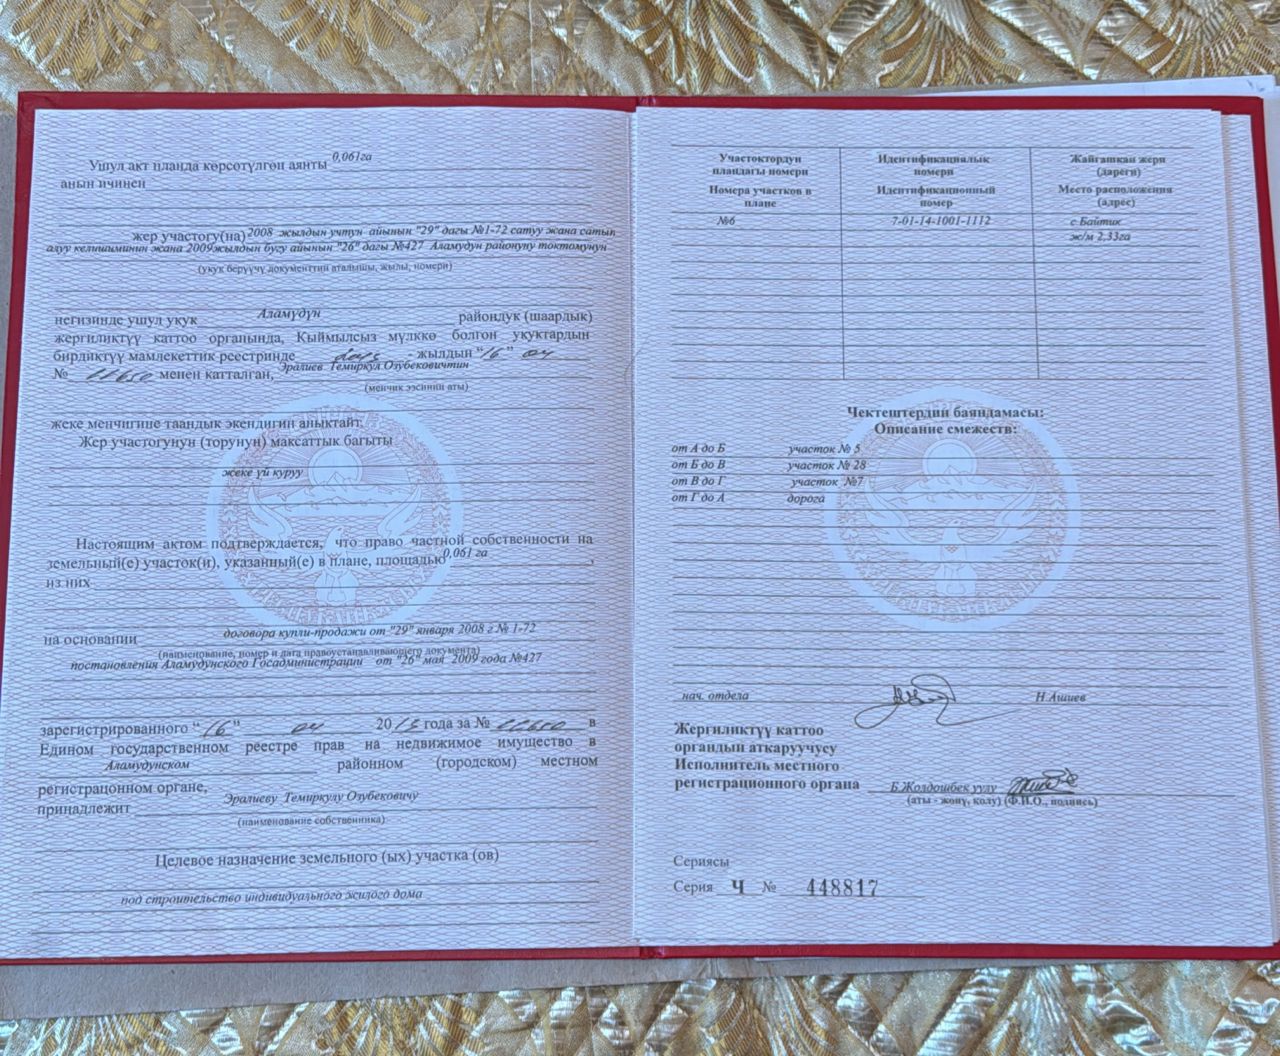 Ушул акт планда көрсөтүлгөн аянты 0,061га
анын ичинен
жер участогу(на) 2008 жылдын учтун айынын "29" дагы №1-72 сатуу жана сатып
алуу келишиминин жана 2009жылдын бугу айынын "26" дагы №427 Аламудун районуну токтомунун
(укук берүүчү документтин аталышы, жылы, номери)
негизинде ушул укук Аламүдүн райондук (шаардык)
жергиликтүү каттоо органында, Кыймылсыз мүлккө болгон укуктардын
бирдиктүү мамлекеттик реестринде - жылдын "16" 04
№ менен катталган, Эралиев Темиркул Озубековичтин
(менчик ээсинин аты)
жеке менчигине таандык экендигин аныктайт.
Жер участогунун (торунун) максаттык багыты
жеке үй куруу
Настоящим актом подтверждается, что право частной собственности на
земельный(е) участок(и), указанный(е) в плане, площадью 0,061 га ,
из них
на основании договора купли-продажи от "29" января 2008 г № 1-72
(наименование, номер и дата правоустанавливающего документа)
постановления Аламудунского Госадминистрации от "26" мая 2009 года №427
зарегистрированного "16" 04 2015 года за № в
Едином государственном реестре прав на недвижимое имущество в
Аламудунском районном (городском) местном
регистрацонном органе,
принадлежит Эралиеву Темиркулу Озубековичу
(наименование собственника)
Целевое назначение земельного (ых) участка (ов)
под строительство индивидуального жилого дома
Участоктордун пландагы номери Идентификациялык номери Жайгашкан жери (дареги)
Номера участков в плане Идентификационный номер Место расположения (адрес)
№6 7-01-14-1001-1112 с.Байтик
ж/м 2,33га
Чектештердин баяндамасы:
Описание смежеств:
от А до Б участок № 5
от Б до В участок № 28
от В до Г участок №7
от Г до А дорога
нач. отдела Н.Ашиев
Жергиликтүү каттоо
органдын аткаруучусу
Исполнитель местного
регистрационного органа Б.Жолдошбек уулу
(аты - жөнү, колу) (Ф.И.О., подпись)
Сериясы
Серия Ч № 448817